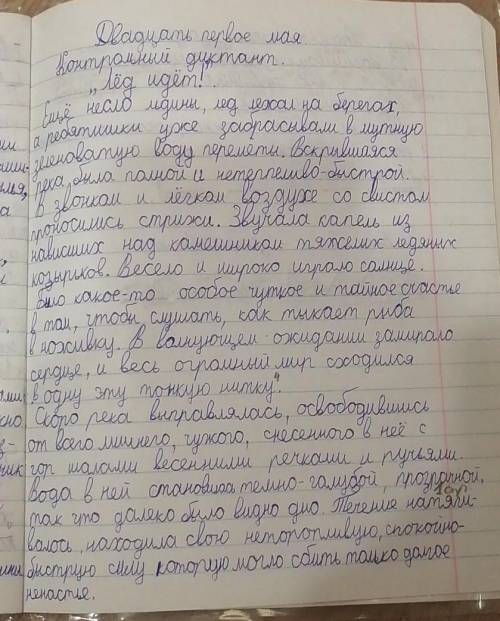 Двадцать первое мая
Контрольный диктант.
„Лёд идёт!"
Ещё несло льдины, лед лежал на берегах,
а ребятишки уже забрасывали в мутную
зеленоватую воду переметы. Вскрывшаяся
река была полной и нетерпеливо-быстрой.
В звонком и лёгком воздухе со свистом
проносились стрижи. Звучала капель из
нависших над камешником тяжелых ледяных
козырьков. Весело и широко играло солнце.
Было какое-то особое чуткое и тайное счастье
в том, чтобы слушать, как тыкает рыба
в наживку. В волнующем ожидании замирало
сердце, и весь огромный мир сходился
в одну эту тонкую нитку."
Скоро река выправлялась, освободившись
от всего лишнего, чужого, снесенного в неё с
гор шалами весенними речками и ручьями.
Вода в ней становилась темно-голубой, прозрачной,
так что далеко было видно дно. Течение натяги-
валось, находила свою неторопливую, спокойно-
быструю силу которую могло сбить только долгое
ненастье.